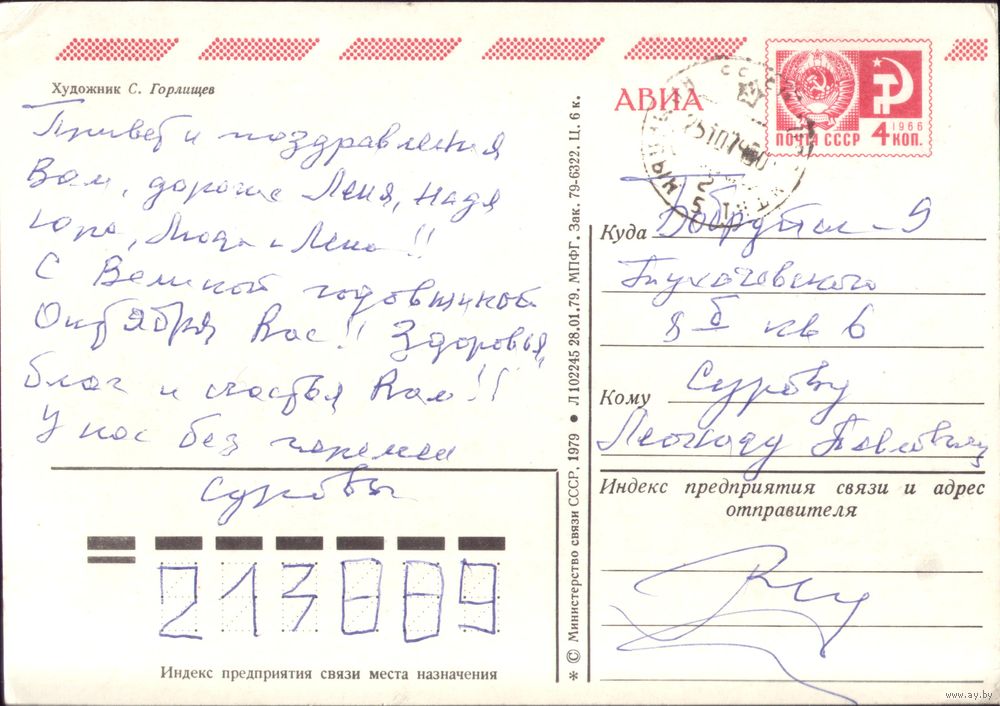 Художник С. Горлищев
Привет и поздравления
Вам, дорогие Лёня, Надя
Юра, Люда и Лена!!
С Великой годовщиной
Октября Вас!! Здоровья,
благ и счастья Вам!!
У нас без перемен
Суровы
213889
Индекс предприятия связи места назначения
* © Министерство связи СССР. 1979 ● Л 102245 28.01.79. МПФГ. Зак. 79-6322. Ц. 6 к.
АВИА
СССР
ПОЧТА СССР
1966
4 КОП.
Куда Бобруйск-9
Тухачевского
8 Б кв 6
Кому Сурову
Леониду Павловичу
Индекс предприятия связи и адрес
отправителя
www.ay.by